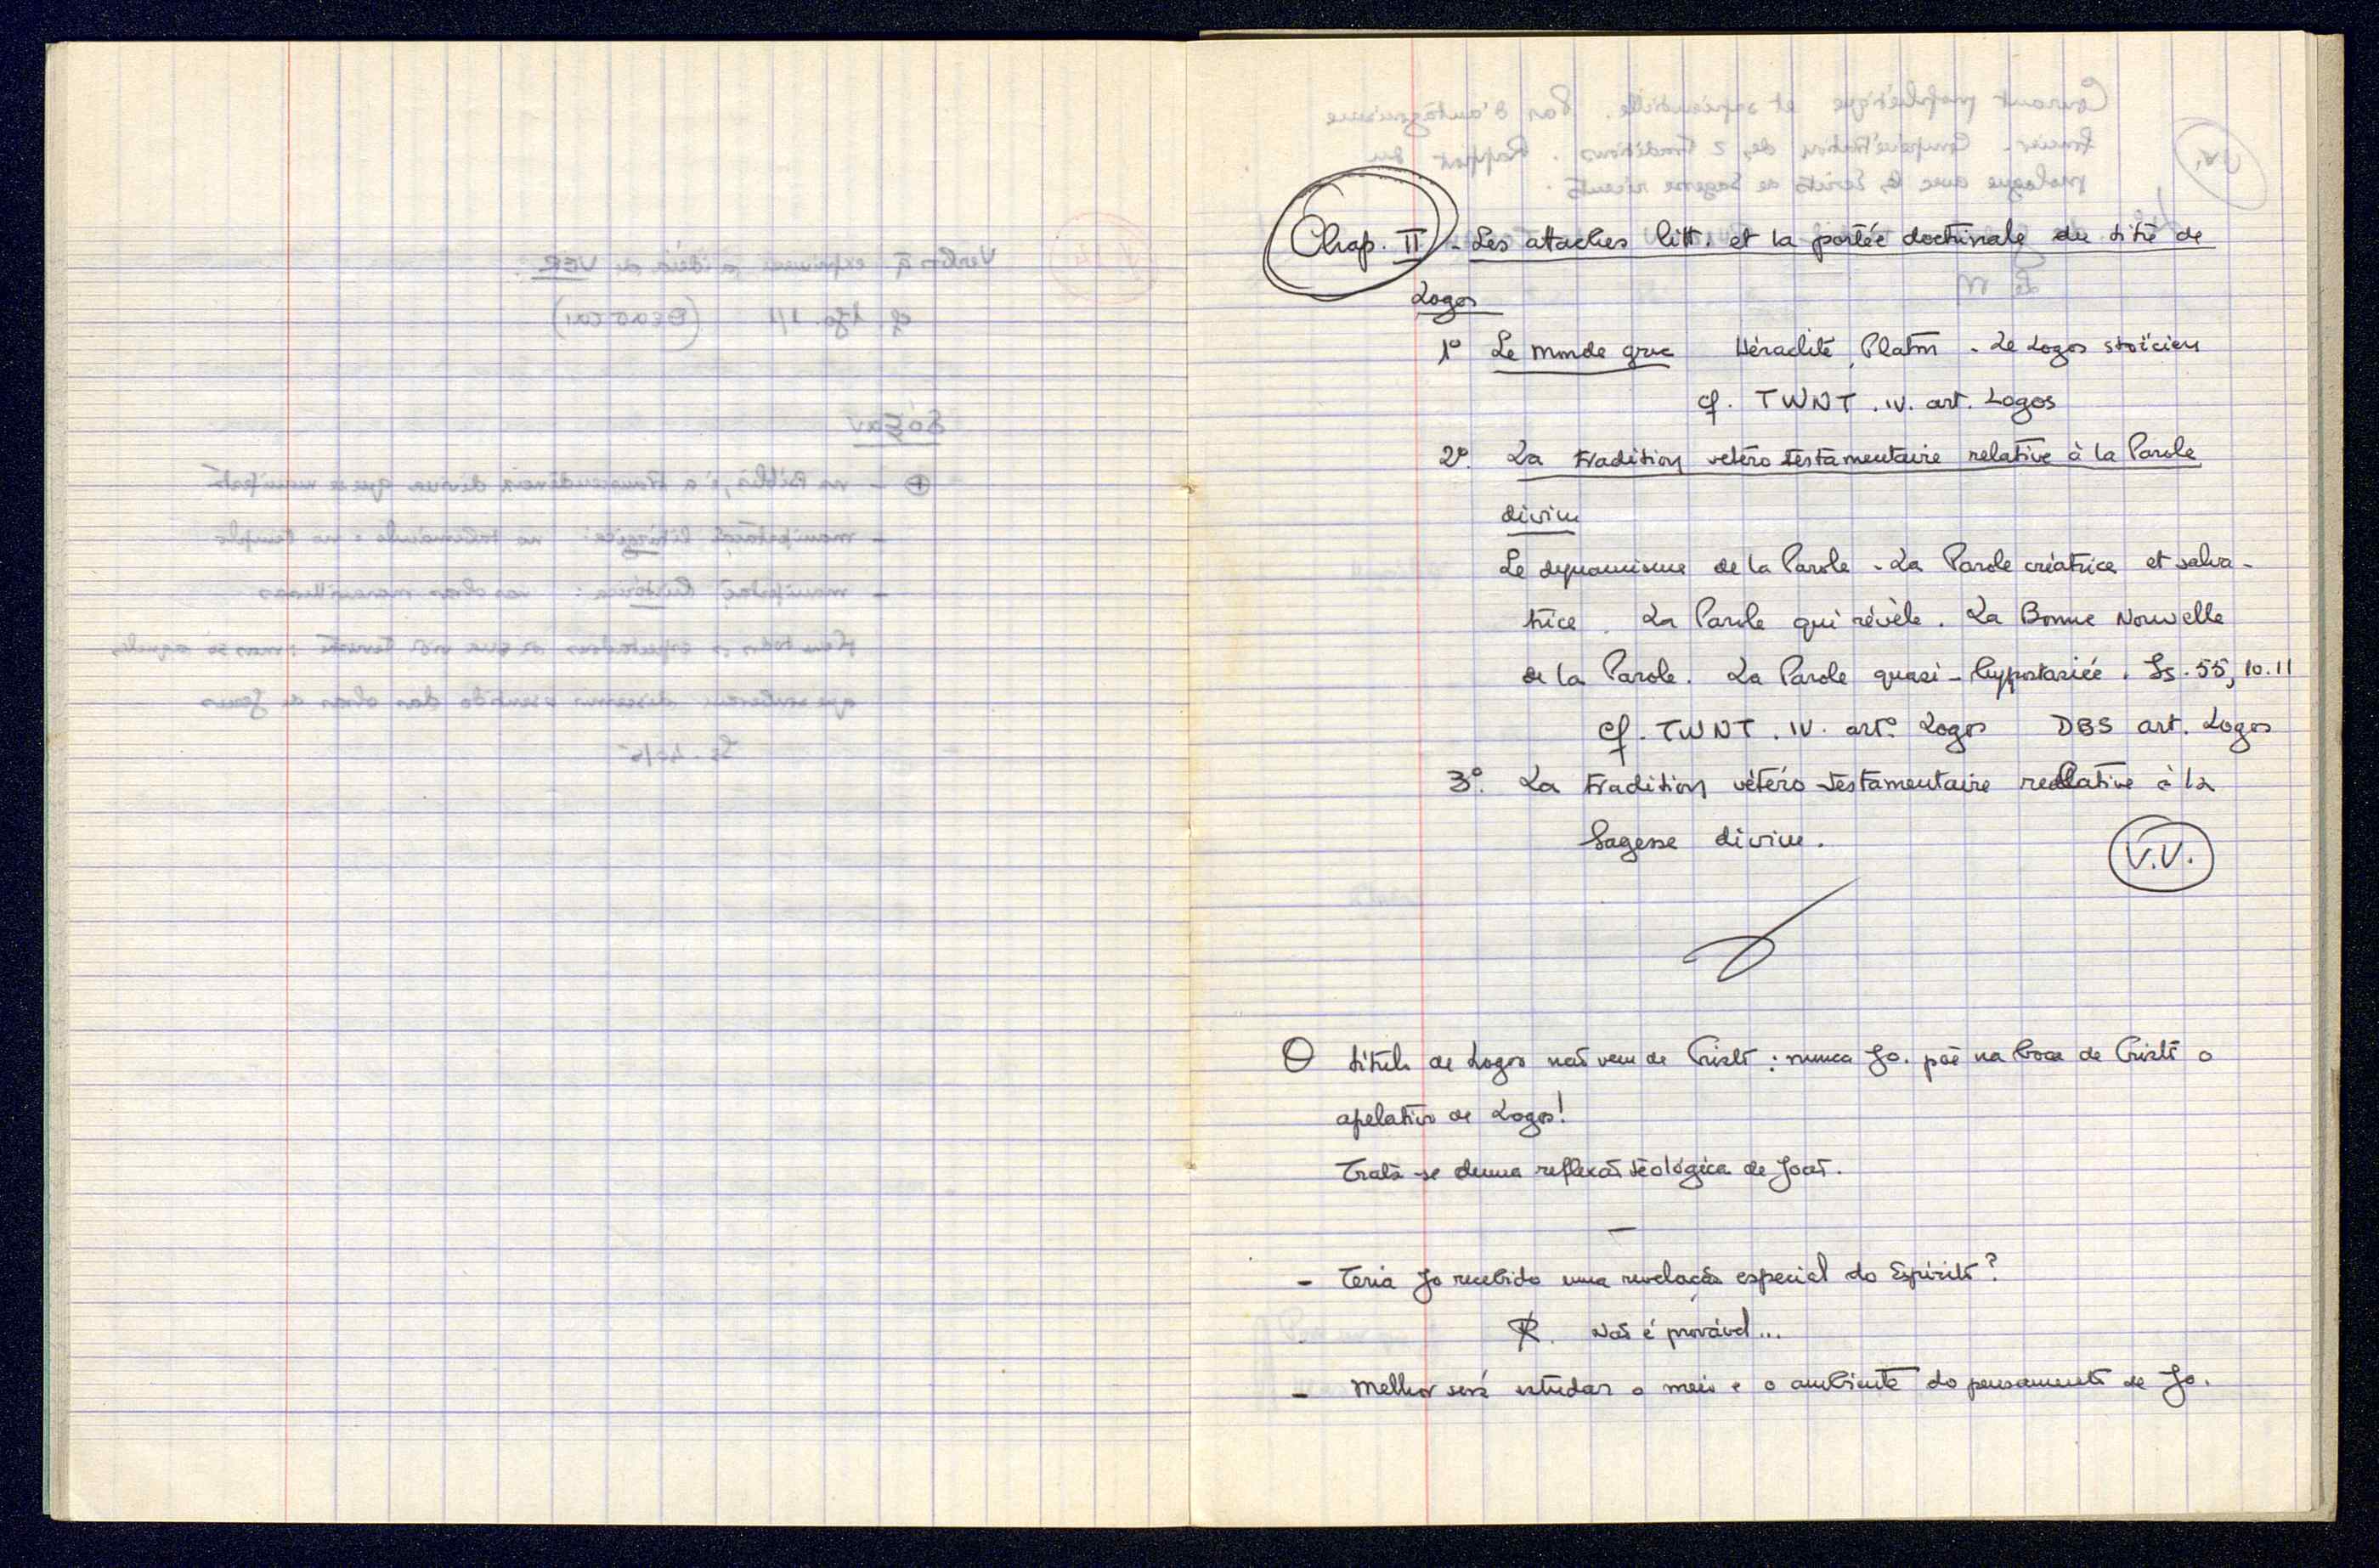 Chap. II - Les attaches litt. et la portée doctrinale du titre de
Logos
1º Le monde grec Héraclite, Platon - Le Logos stoïcien
cf. TWNT. IV. art. Logos
2º. La tradition vétéro testamentaire relative à la Parole
divine
Le dynamisme de la Parole - La Parole créatrice et salva-
trice. La Parole qui révèle. La Bonne Nouvelle
de la Parole. La Parole quasi-hypostasiée. Is. 55, 10.11
cf. TWNT. IV. artº Logos DBS art. Logos
3º. La tradition vétéro-testamentaire relative à la
Sagesse divine.
V.V.
O título de Logos não vem de Cristo: nunca Jo. põe na boca de Cristo o
apelativo de Logos!
Trata-se duma reflexão teológica de João.
—
- Teria Jo recebido uma revelação especial do Espírito?
R. Não é provável...
- Melhor será estudar o meio e o ambiente do pensamento de Jo.